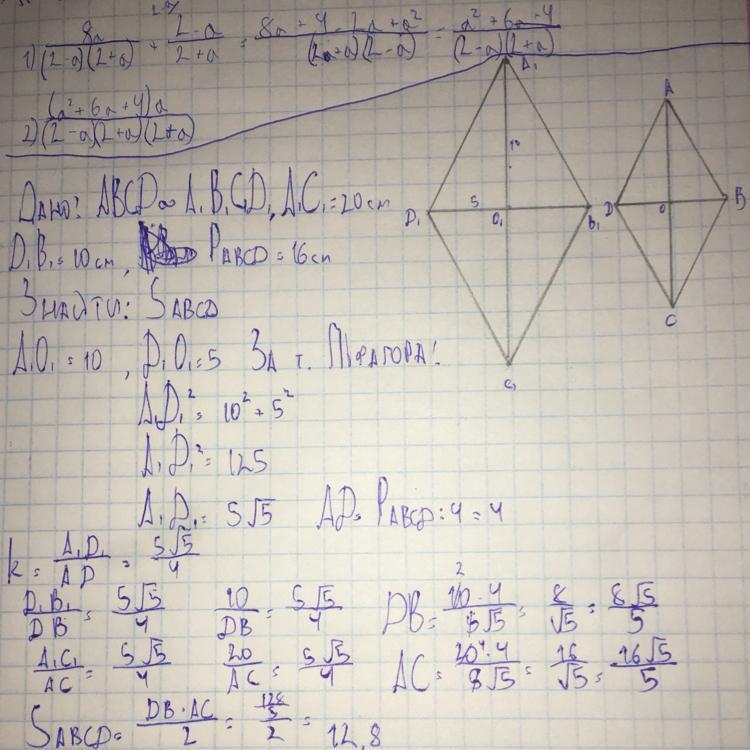 1) 8a/((2-a)(2+a)) + (2-a)/(2+a) = (8a+4-2a+a²)/((2+a)(2-a)) = (a²+6a+4)/((2-a)(2+a))
2) (a²+6a+4)a/((2-a)(2+a)(2+a))
A₁
10
D₁ 5 O₁ B₁
C₁
A
D O B
C
Дано: ABCD ∼ A₁B₁C₁D₁, A₁C₁=20см
D₁B₁=10см, PABCD=16см
Знайти: SABCD
A₁O₁=10, D₁O₁=5 За т. Піфагора:
A₁D₁²=10²+5²
A₁D₁²=125
A₁D₁=5√5 AD=PABCD:4=4
k = A₁D₁/AD = 5√5/4
D₁B₁/DB = 5√5/4 10/DB = 5√5/4 DB = 10·4/5√5 = 8/√5 = 8√5/5
A₁C₁/AC = 5√5/4 20/AC = 5√5/4 AC = 20·4/5√5 = 16/√5 = 16√5/5
SABCD = DB·AC/2 = (128/5)/2 = 12,8